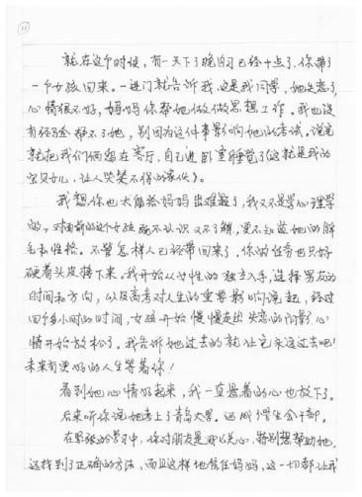 就在这个时候，有一天下了晚自习已经十点了，你带了
一个女孩回来。一进门就告诉我，这是我同学，她失恋了，
心情很不好，妈妈你帮她做做思想工作。我也没
有经验帮不了她，别因为这件事影响她的考试。说完
就把我们俩留在客厅，自己进卧室睡觉了（这就是我的
宝贝女儿，让人哭笑不得的家伙）。
我想你也太能给妈妈出难题了，我又不是学心理学
的，对面前的这个女孩既不认识又不了解，更不知道她的脾
气和性格。不管怎样人已经带回来了，你的任务也只好
硬着头皮接下来。我开始从女性的独立入手，选择男友的
时间和方向，以及高考对人生的重要影响说起，经过
四个多小时的时间，女孩开始慢慢走出失恋的阴影心
情开始放松了。我告诉她过去的就让它永远过去吧！
未来有更好的人生等着你！
看到她心情好起来，我一直悬着的心也放下了。
后来听你说她考上了青岛大学。还成了学生会干部。
在紧张的学习中，你对朋友是那么关心，特别想帮助她，
还找到了正确的方法，而且这样地信任妈妈，这一切都让我